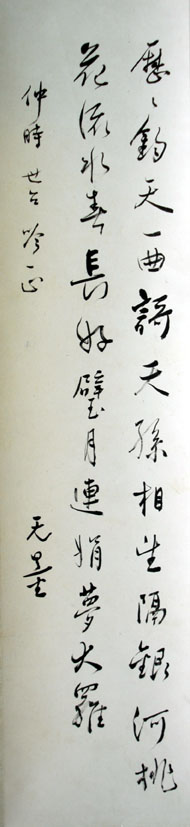 歷〻鈞天一曲謌天孫相望隔銀河桃
花流水春長好璧月連娟夢大羅
仲時世台吟正
无量